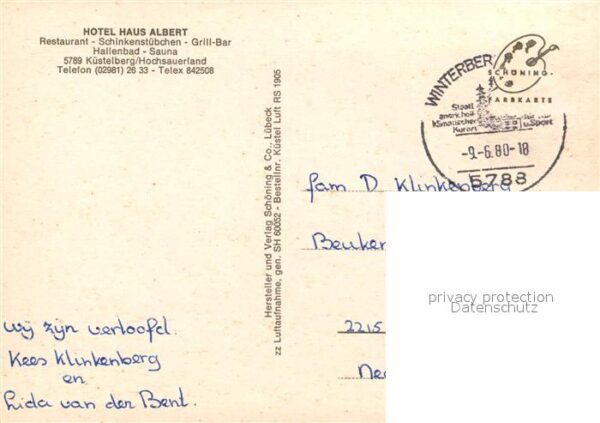 HOTEL HAUS ALBERT
Restaurant - Schinkenstübchen - Grill-Bar
Hallenbad - Sauna
5789 Küstelberg/Hochsauerland
Telefon (02981) 26 33 - Telex 842508
wij zijn verloofd.
Kees Klinkenberg
en
Lida van der Bent.
Hersteller und Verlag Schöning & Co., Lübeck
zz Luftaufnahme, gen. SH 60052 - Bestellnr. Küstel Luft RS 1905
SCHÖNING-
FARBKARTE
WINTERBER
Staatl
anerk heil
Klimatischer
Kurort
u Sport
-9.-6.80-18
5788
fam D Klinkenberg
Beuken
2215
Ned
privacy protection
Datenschutz